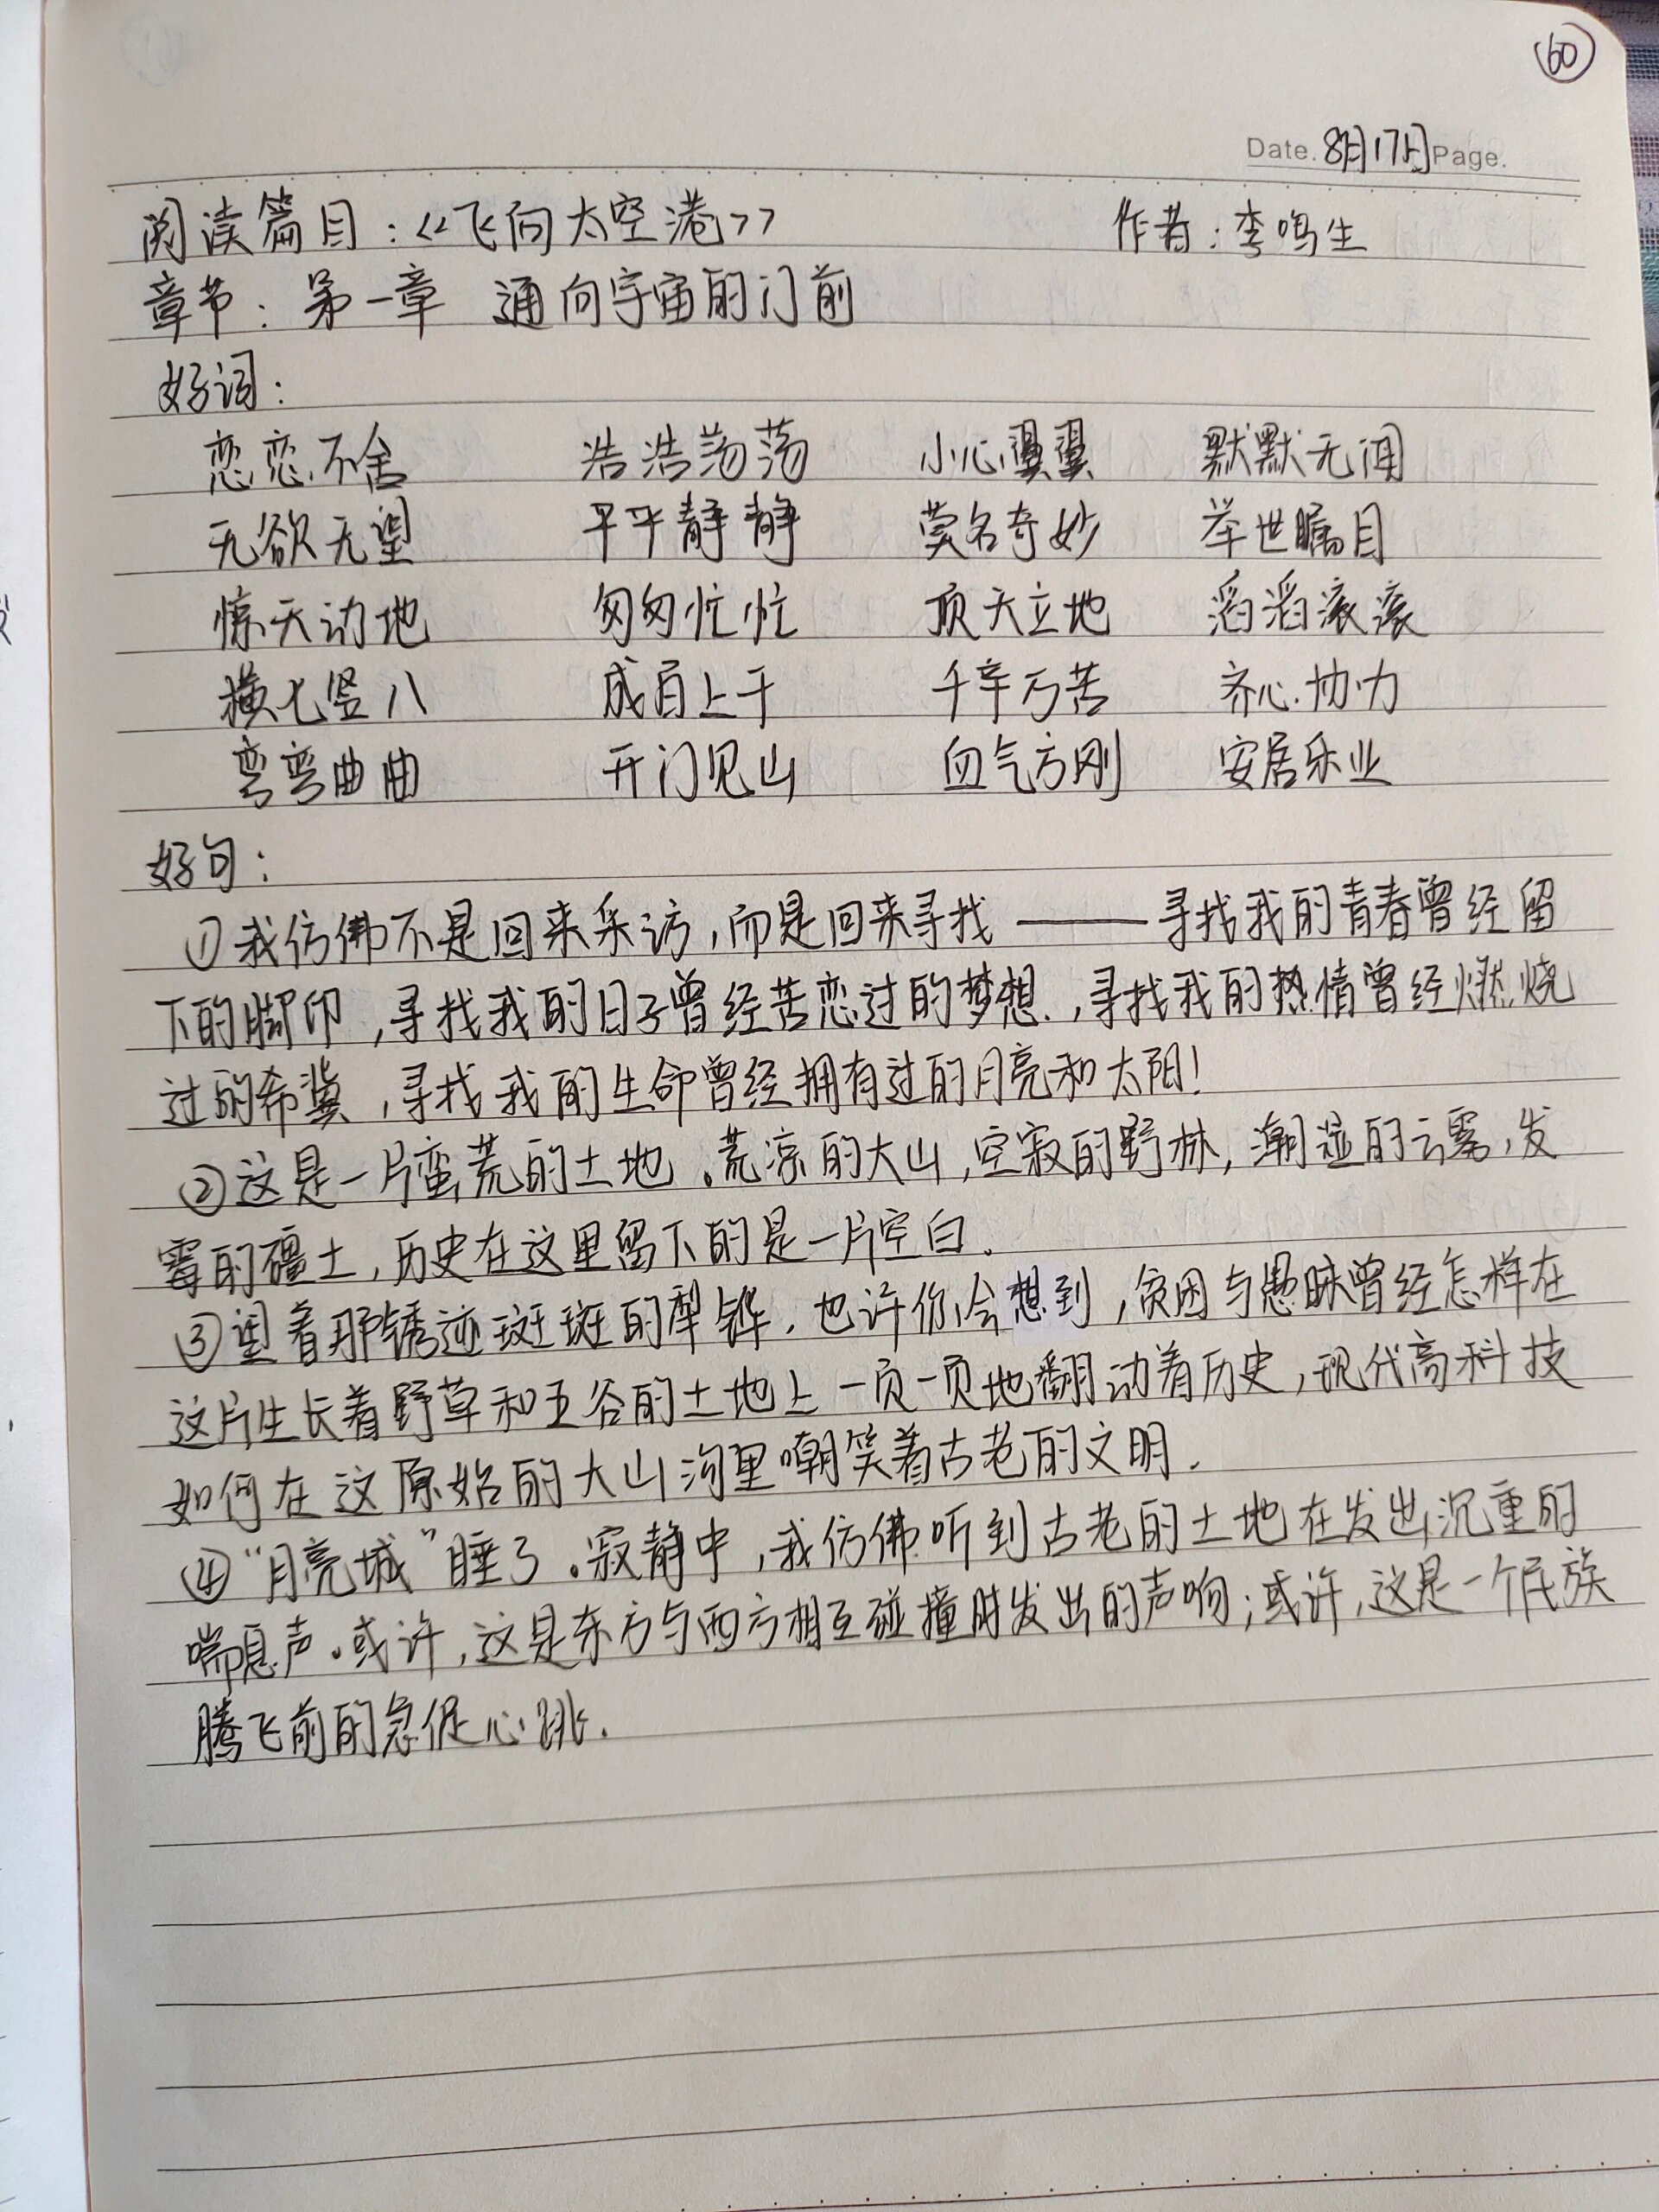 60
Date. 8月17日 Page.
阅读篇目：《飞向太空港》 作者：李鸣生
章节：第一章 通向宇宙的门前
好词：
恋恋不舍 浩浩荡荡 小心翼翼 默默无闻
无欲无望 平平静静 莫名奇妙 举世瞩目
惊天动地 匆匆忙忙 顶天立地 滔滔滚滚
横七竖八 成百上千 千辛万苦 齐心协力
弯弯曲曲 开门见山 血气方刚 安居乐业
好句：
①我仿佛不是回来采访，而是回来寻找——寻找我的青春曾经留
下的脚印，寻找我的日子曾经苦恋过的梦想，寻找我的热情曾经燃烧
过的希冀，寻找我的生命曾经拥有过的月亮和太阳！
②这是一片蛮荒的土地。荒凉的大山，空寂的野林，潮湿的云雾，发
霉的疆土，历史在这里留下的是一片空白.
③望着那锈迹斑斑的犁铧，也许你会想到，贫困与愚昧曾经怎样在
这片生长着野草和五谷的土地上一页一页地翻动着历史，现代高科技
如何在这原始的大山沟里嘲笑着古老的文明.
④“月亮城”睡了。寂静中，我仿佛听到古老的土地在发出沉重的
喘息声。或许，这是东方与西方相互碰撞时发出的声响；或许，这是一个民族
腾飞前的急促心跳.